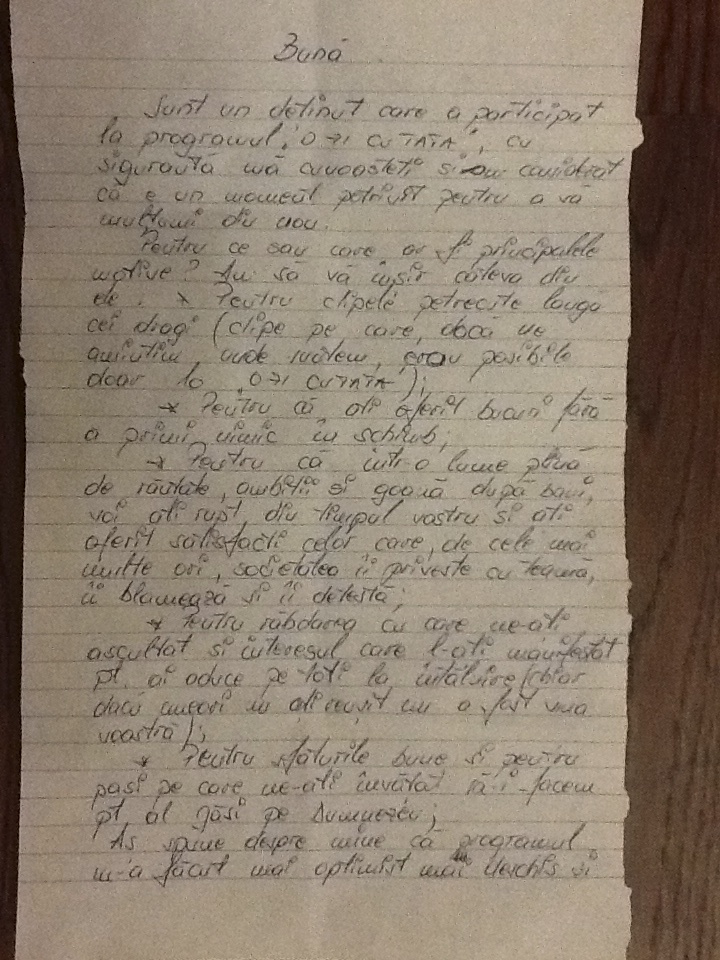 Bună
Sunt un deținut care a participat
la programul "O ZI CU TATA", cu
siguranță mă cunoașteți și am considerat
că e un moment potrivit pentru a vă
mulțumi din nou.
Pentru ce sau care ar fi principalele
motive? Am să vă înșir câteva din
ele. * Pentru clipele petrecute lângă
cei dragi (clipe pe care, dacă ne
amintim, unde suntem, erau posibile
doar la "O ZI CU TATA");
* Pentru că ați oferit bucurii fără
a primi nimic în schimb;
* Pentru că într-o lume plină
de răutate, ambiții și goană după bani,
voi ați rupt, din timpul vostru și ați
oferit satisfacții celor care, de cele mai
multe ori, societatea îi privește cu teamă,
îi blamează și îi detestă;
* Pentru răbdarea cu care ne-ați
ascultat și interesul care l-ați manifestat
pt. ai aduce pe toți la întâlnire (chiar
dacă uneori nu ați reușit nu a fost vina
voastră);
* Pentru sfaturile bune și pentru
pași pe care ne-ați învățat să-i facem
pt. al găsi pe Dumnezeu;
Aș spune despre mine că programul
m-a făcut mai optimist mai deschis și